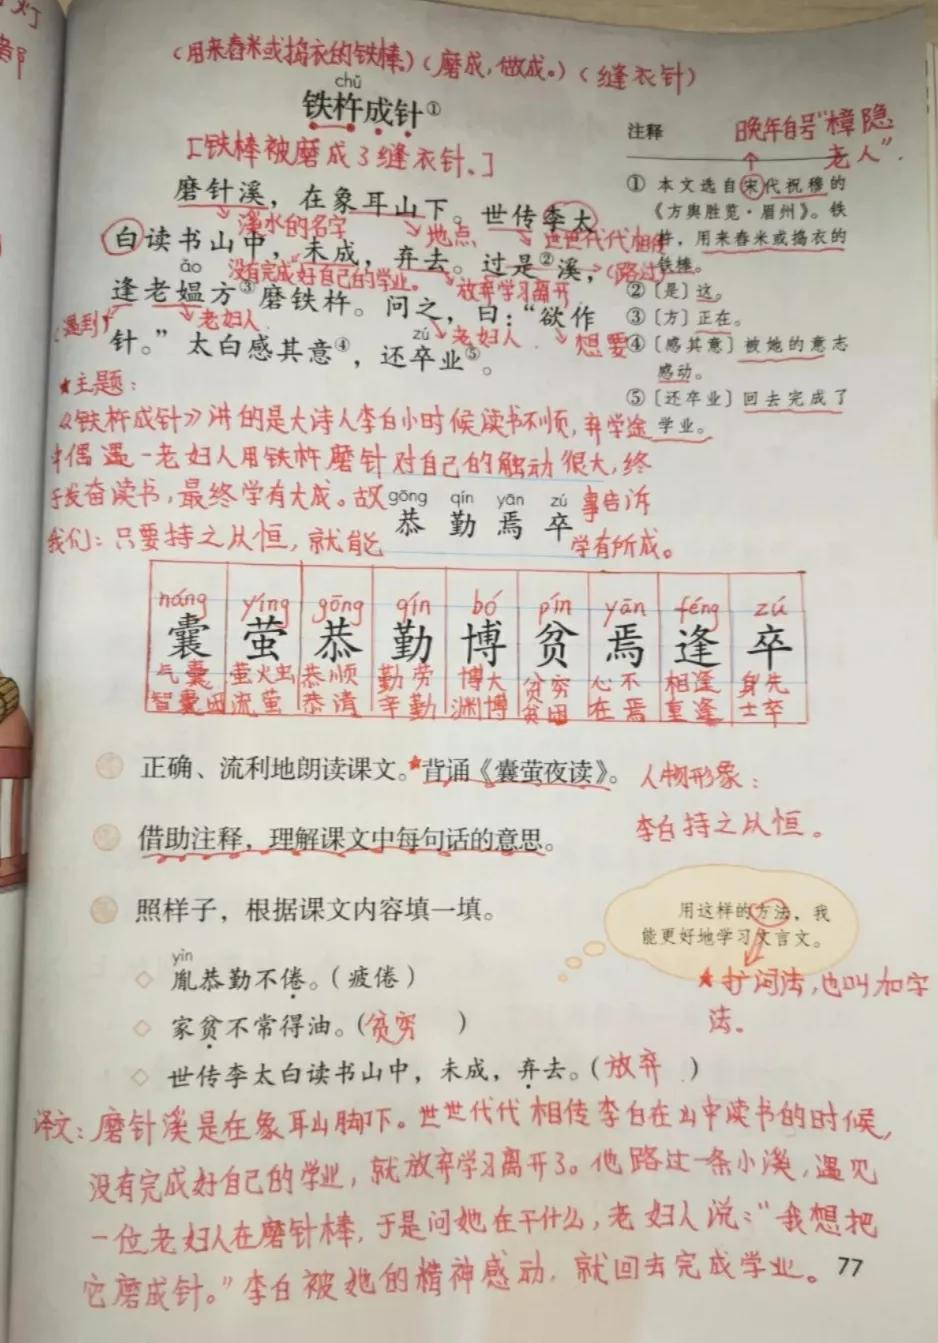 (用来舂米或捣衣的铁棒。)(磨成,做成。)(缝衣针)
chǔ
铁杵成针①
[铁棒被磨成了缝衣针。]
磨针溪，在象耳山下。世传李太
溪水的名字
地点
世世代代相传
白读书山中，未成，弃去。过是②溪，
没有完成好自己的学业。
放弃学习离开
(路过)
ǎo
逢老媪方③磨铁杵。问之，曰：“欲作
遇到
老妇人
老妇人
想要
zú
针。”太白感其意④，还卒业⑤。
注释
晚年自号“樟隐
老人”.
① 本文选自宋代祝穆的
《方舆胜览·眉州》。铁
杵，用来舂米或捣衣的
铁棒。
②〔是〕这。
③〔方〕正在。
④〔感其意〕被她的意志
感动。
⑤〔还卒业〕回去完成了
学业。
★主题:
《铁杵成针》讲的是大诗人李白小时候读书不顺,弃学途
中偶遇一老妇人用铁杵磨针对自己的触动很大,终
于发奋读书,最终学有大成。故 事告诉
gōng qín yān zú
恭 勤 焉 卒
我们:只要持之从恒,就能 学有所成。
náng yíng gōng qín bó pín yān féng zú
囊 萤 恭 勤 博 贫 焉 逢 卒
气囊 萤火虫 恭顺 勤劳 博大 贫穷 心不 相逢 身先
智囊团 流萤 恭请 辛勤 渊博 贫困 在焉 重逢 士卒
正确、流利地朗读课文。★背诵《囊萤夜读》。
人物形象:
李白持之从恒。
借助注释，理解课文中每句话的意思。
照样子，根据课文内容填一填。
用这样的方法，我
能更好地学习文言文。
★扩词法,也叫加字
法.
yìn
◇ 胤恭勤不倦。（疲倦）
◇ 家贫不常得油。（贫穷 ）
◇ 世传李太白读书山中，未成，弃去。（放弃 ）
译文:磨针溪是在象耳山脚下。世世代代相传李白在山中读书的时候,
没有完成好自己的学业,就放弃学习离开了。他路过一条小溪,遇见
一位老妇人在磨针棒,于是问她在干什么,老妇人说:“我想把
它磨成针。”李白被她的精神感动.就回去完成学业。
77